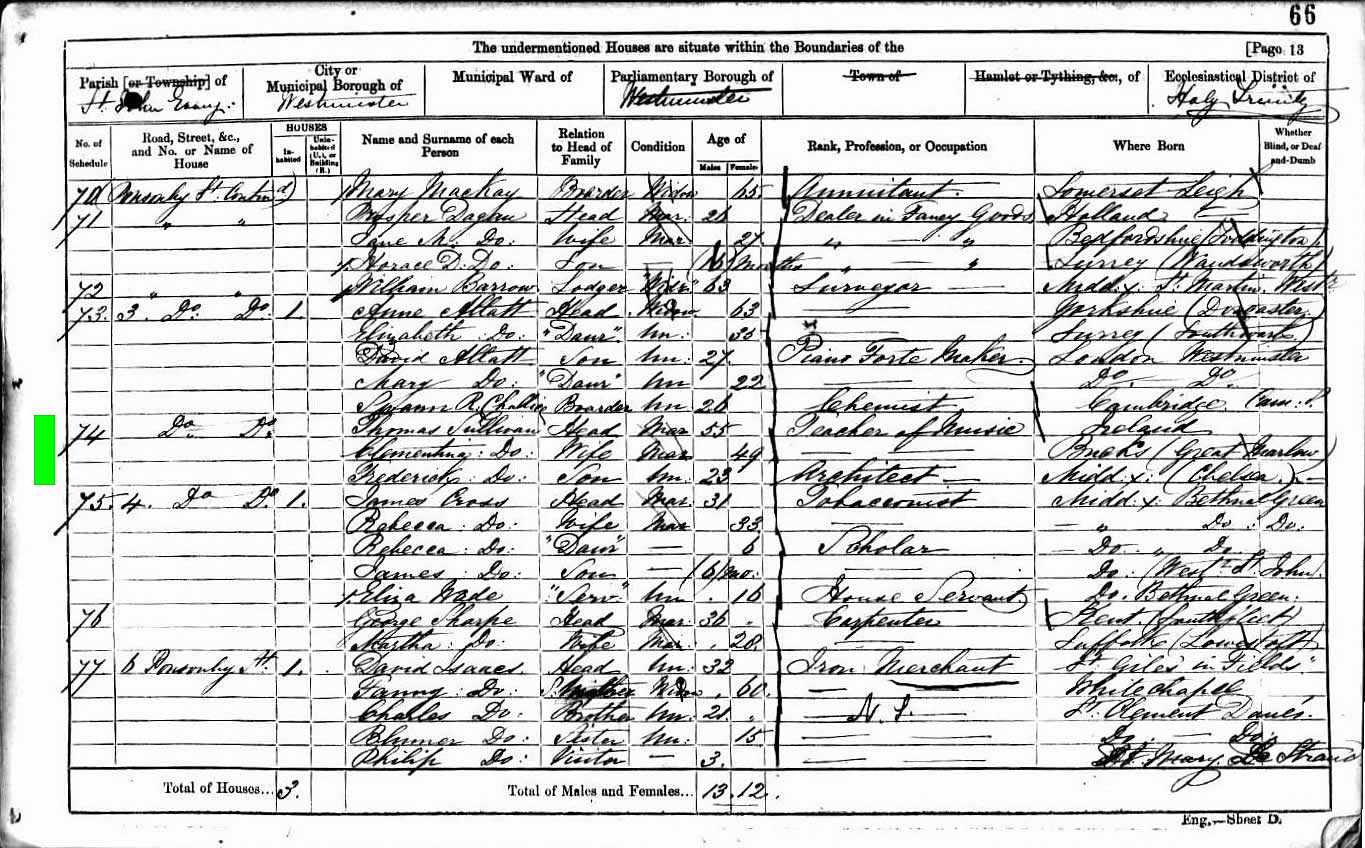 66
The undermentioned Houses are situate within the Boundaries of the [Page 13
Parish [or Township] of City or Municipal Borough of Municipal Ward of Parliamentary Borough of Town of Hamlet or Tything, &c., of Ecclesiastical District of
St. John Evang: Westminster Westminster Holy Trinity
No. of Schedule Road, Street, &c., and No. or Name of House HOUSES In-habited Unin-habited (U.), or Building (B.) Name and Surname of each Person Relation to Head of Family Condition Age of Males Females Rank, Profession, or Occupation Where Born Whether Blind, or Deaf-and-Dumb
70 Ponsonby St. Contind) Mary MacKay Boarder Widow 65 Annuitant Somerset Leigh
71 " " Head Mar: 28 Dealer in Fancy Goods Holland
Jane M: Do: Wife Mar 27 " " Bedfordshire (Toddington)
Horace D: Do: Son — (10) (Months " " Surrey (Wandsworth)
72 " " William Barrow Lodger "Widr" 63 Surveyor Midd:x: St. Martin. Westr
73. 3. Do: Do: 1. Anne Allatt Head Widow 63 — Yorkshire (Doncaster)
Elizabeth Do: "Daur" Un: 35 — Surrey (Southwark)
David Allatt Son Un: 27 Piano Forte Maker. London Westminster
Mary Do: "Daur" Un 22 — Do. Do.
Swann R. Challis Boarder Un 26 Chemist Cambridge Cam:
74 Do. Do. Thomas Sullivan Head Mar 55 Teacher of Music Ireland
Clementina: Do: Wife Mar 49 — Bucks (Great Marlow)
Frederick: Do: Son Un: 23 Architect — Midd:x: (Chelsea.)
75. 4. Do Do. 1. James Cross Head Mar: 31 Tobacconist Midd:x: Bethnal Green
Rebecca: Do: Wife Mar 33 — " Do: Do:
Rebecca: Do: "Daur" — 6 Scholar Do. " Do.
James: Do: Son — (6) mo: — Do: (West. St. John).
Eliza Wade "Serv." Un 16 House Servant Do. Bethnal Green.
76 George Sharpe Head Mar: 36 " Carpenter Kent. (Southfleet)
Martha: Do: Wife Mar: 28. — Suffolk (Lowestoft)
77 6 Ponsonby St. 1. David Isaacs. Head Un: 32 Iron Merchant St. Giles in Fields"
Fanny: Do: Mother Widow 60. — Whitechapel
Charles Do: Brother Un: 21 " — N. S. — St. Clement Danes.
Do: Sister Un: 15 — Do. Do.
Philip Do: Visitor — 3. — St. Mary Le Strand
Total of Houses... 3. Total of Males and Females... 13. 12.
Eng.—Sheet D.